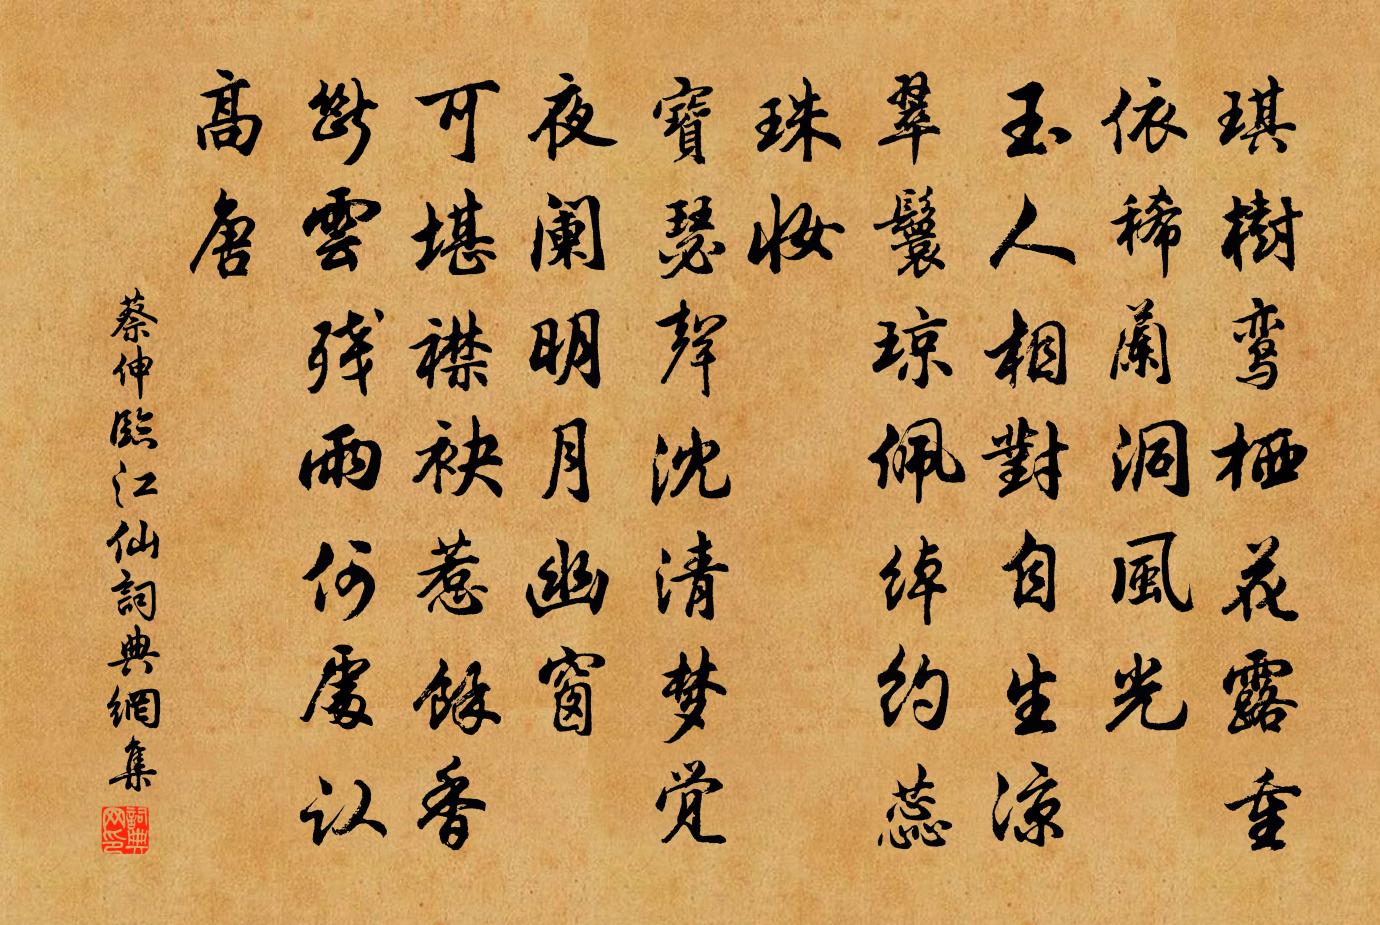 琪樹鸾栖花露重
依稀蘭洞風光
玉人相對自生涼
翠鬟琼佩绰約蕊
珠妝
寶瑟聲沈清梦觉
夜阑明月幽窗
可堪襟袂惹餘香
斷雲残雨何處认
高唐
蔡伸臨江仙詞典網集
詞典网印